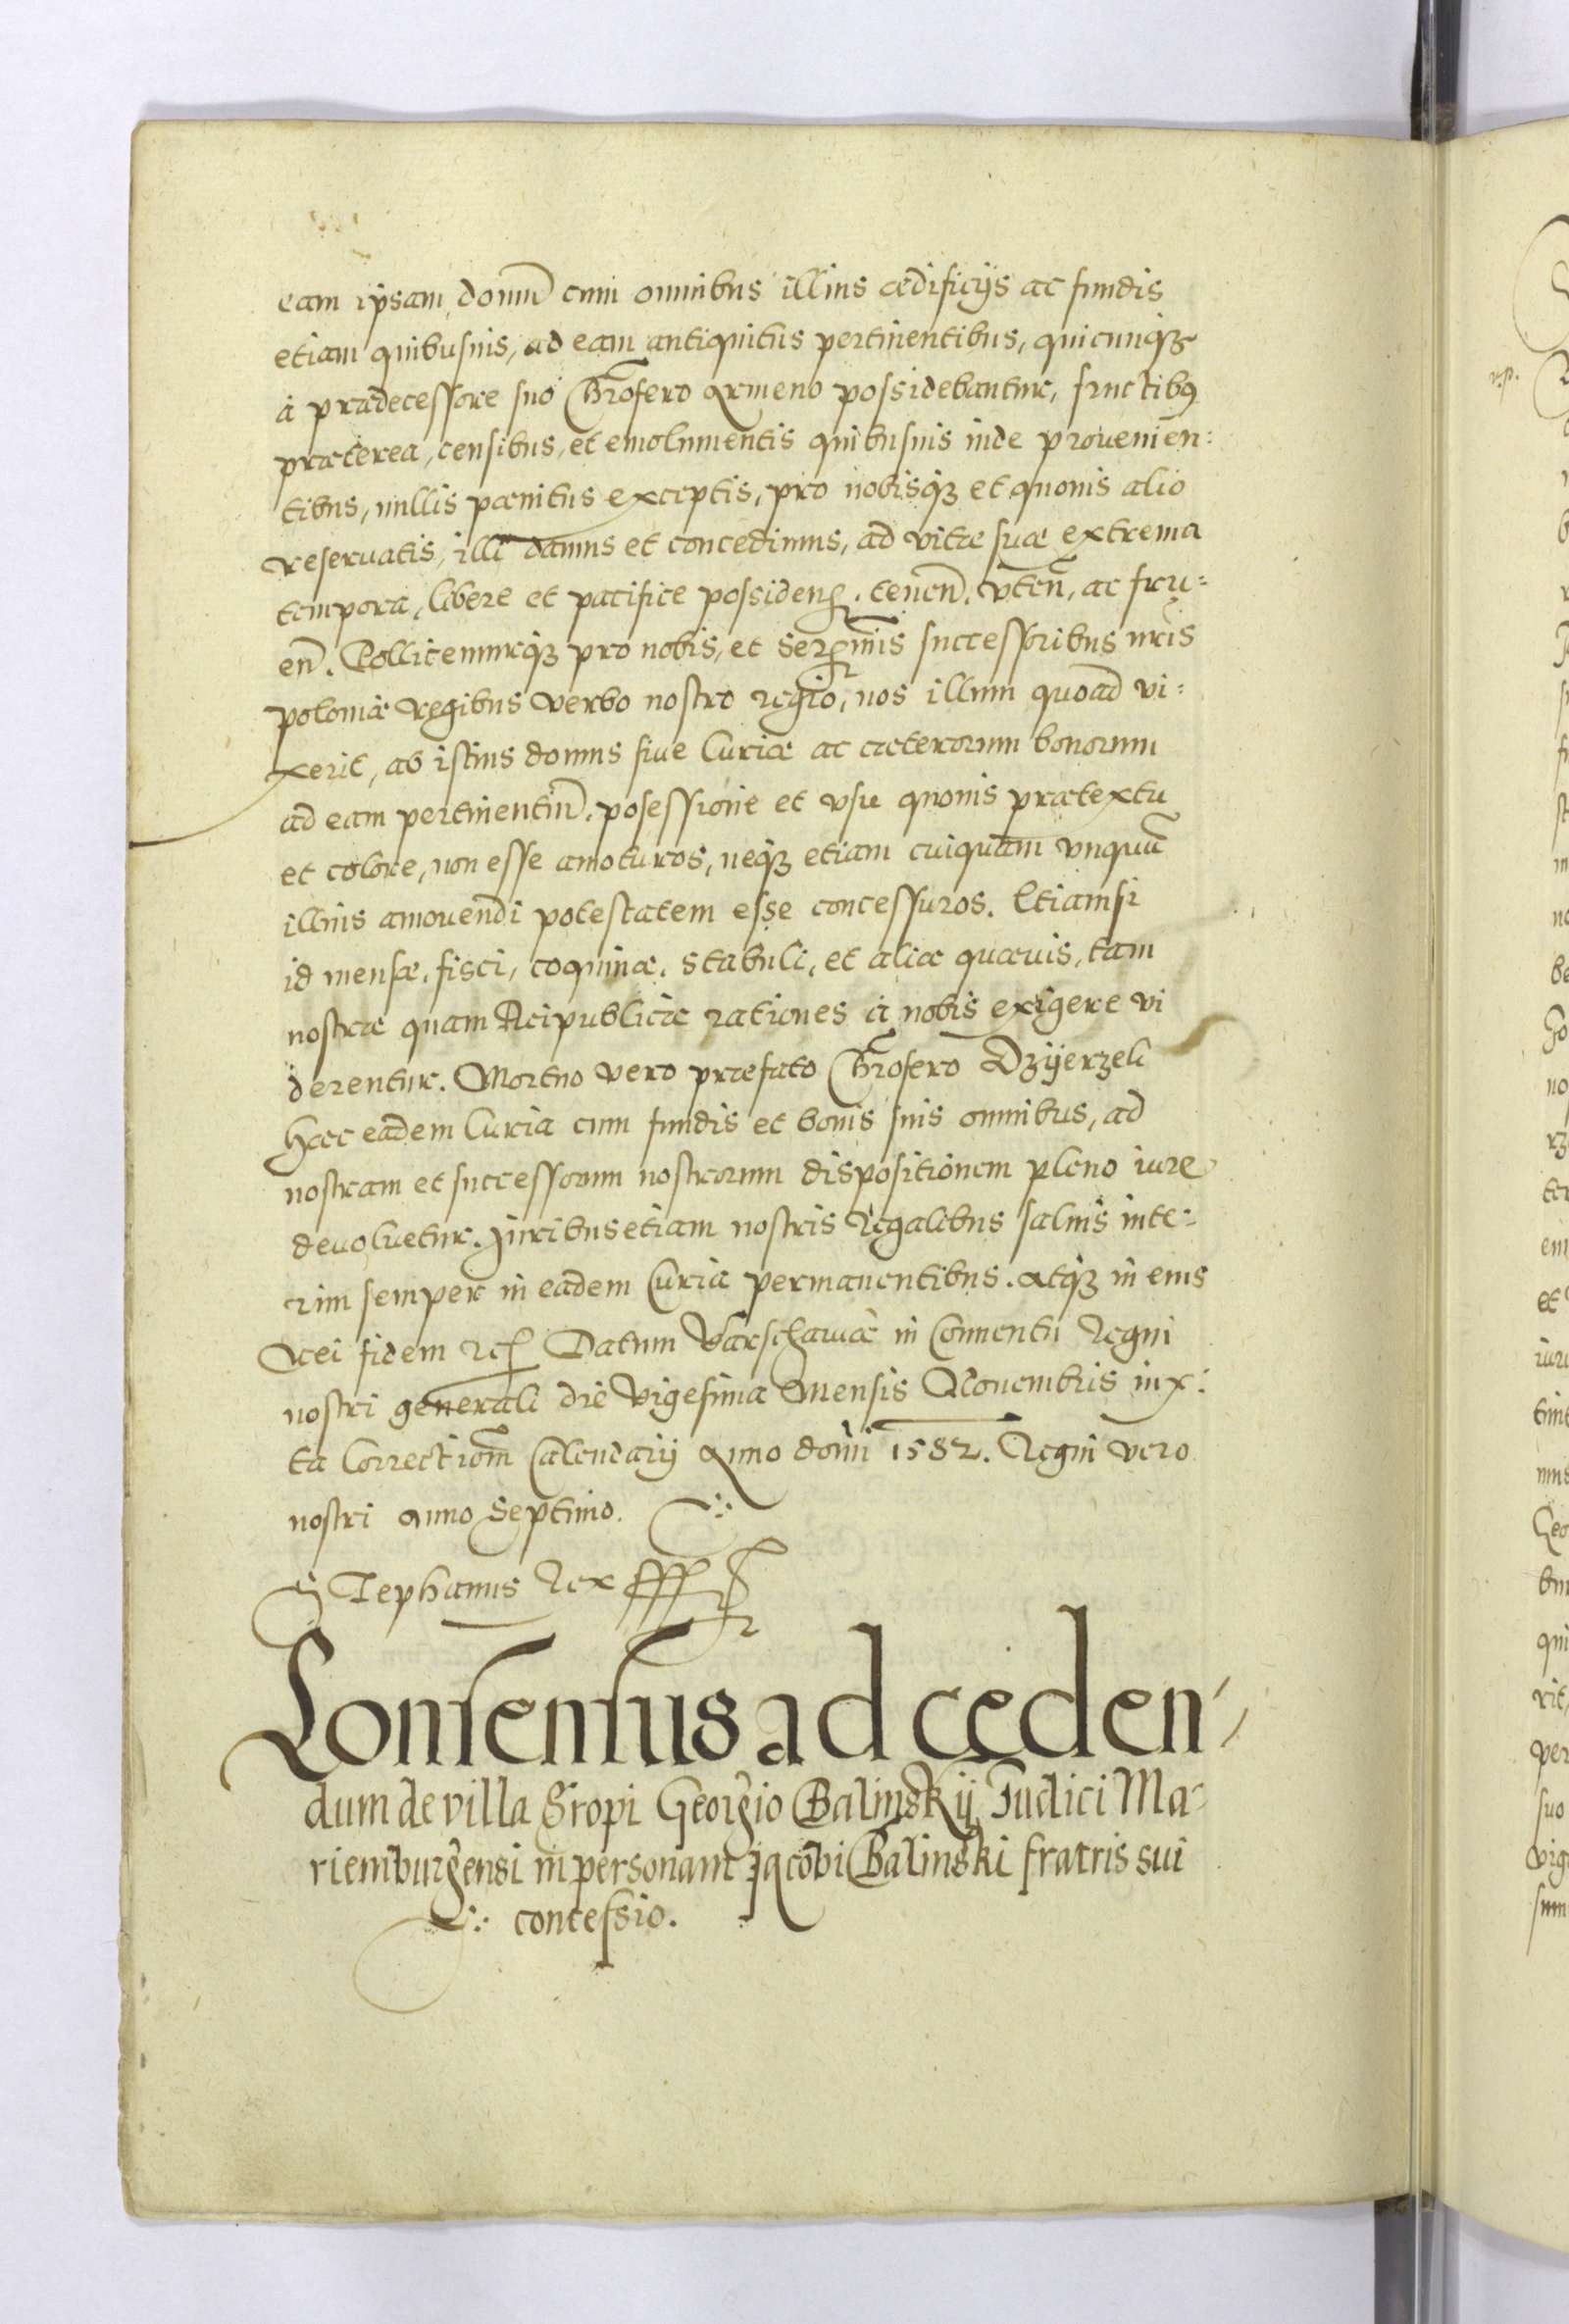 eam ipsam domū cum omnibus illius ædificijs ac fundis
etiam quibusuis, ad eam antiquitus pertinentibus, quicunq3
à prædecessore suo Chrōfero Armeno possidebantur, fructibus
præterea, censibus, et emolumentis quibusuis inde prouenien:
tibus, nullis pænitus exceptis, pro nobisq3 et quouis alio
reseruatis, illi damus et concedimus, ad vitæ suæ extrema
tempora, libere et pacifice possiden. tenen. vten, ac fru:
en. Pollicemurq3 pro nobis, et Serenmis successoribus nr̄is
poloniæ regibus verbo nostro regio, nos illum quoad vi:
xerit, ab istius domus siue Curiæ ac cæterorum bonorum
ad eam pertinentiū. posessione et vsu quouis prætextu
et colore, non esse amoturos, neq3 etiam cuiquam vnquā
illius amouendi potestatem esse concessuros. Etiamsi
id mensæ, fisci, coquinæ, stabuli, et aliæ quæuis, tam
nostræ quam Reipublicæ rationes à nobis exigere vi
derentur. Mortuo vero præfato Chrōfero Dzÿerzek
hæc eadem Curia cum fundis et bonis suis omnibus, ad
nostram et successorum nostrorum dispositionem pleno iure
deuoluetur. Juribus etiam nostris Regalibus saluis inte:
rim semper in eadem Curia permanentibus. Atq3 in eius
rei fidem etc Datum Varschauiæ in Conuentu Regni
nostri generali die Vigesima Mensis Nouembris iux:
ta Correctiōm Calendarij Anno dom̄i 1582. Regni vero
nostri anno Septimo.
Stephanus Rex
Consensus ad ceden,
dum de villa Gropi Georgio Balinskij Judici Ma-
riemburgensi in personam Jacobi Balinski fratris sui
concessio.